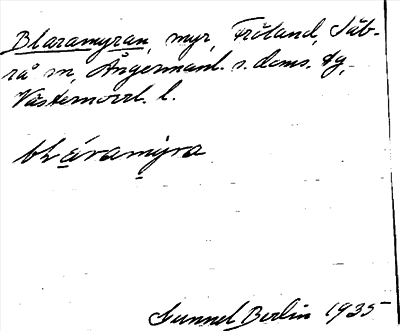 Blaramyran, myr, Fröland, Säb-
rå sn, Ångermanl. s. doms. tg,
Västernorrl. l.
blåramýra
Gunnel Berlin 1935